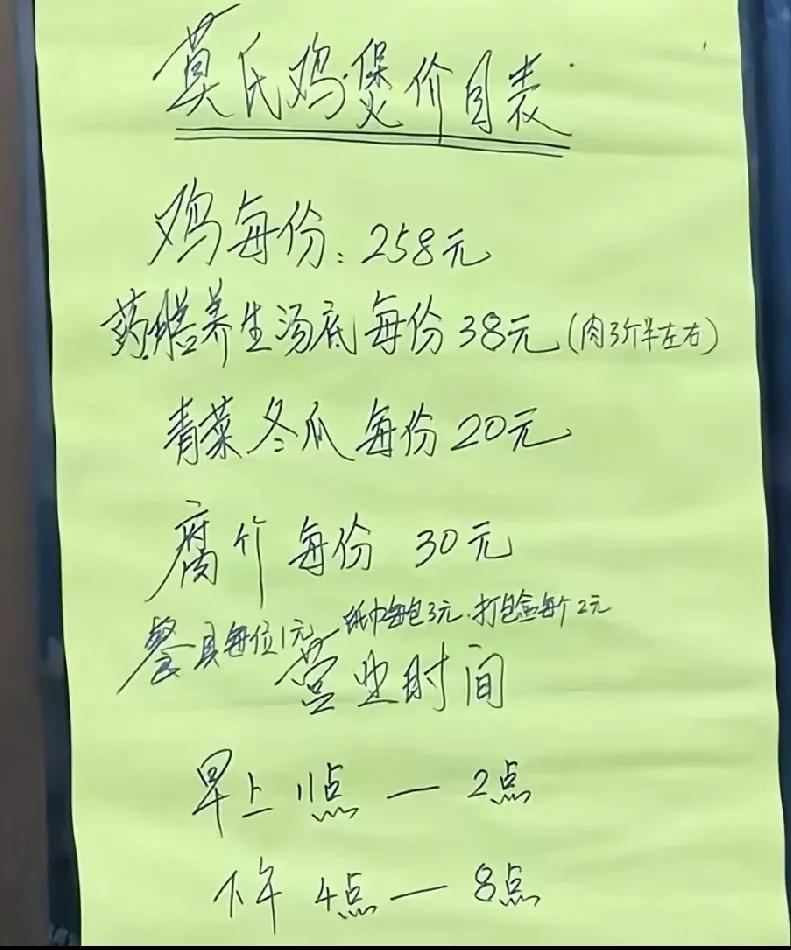 莫氏鸡煲价目表
鸡每份：258元
药膳养生汤底每份38元（肉3斤半左右）
青菜冬瓜每份20元
腐竹每份 30元
餐具每位1元 纸巾每包3元、打包盒每个2元
营业时间
早上11点—2点
下午4点—8点